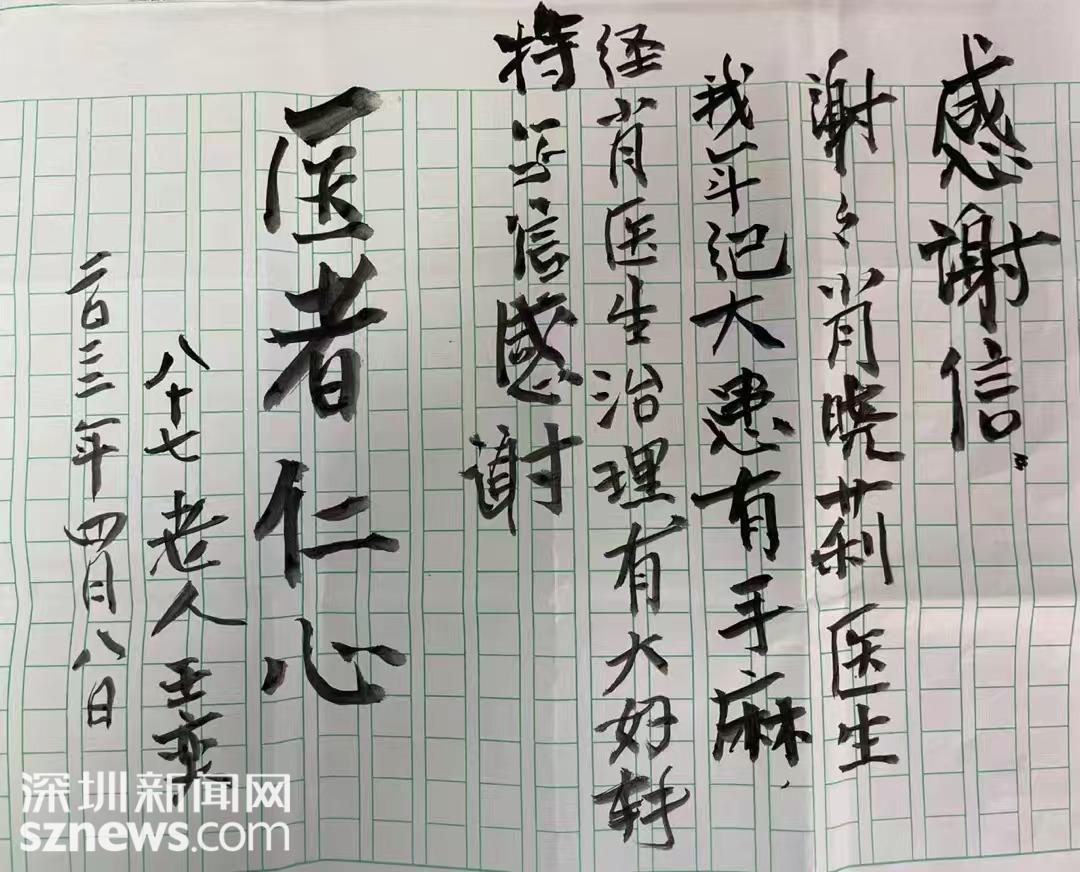 感谢信
谢々肖晓莉医生
我年纪大患有手麻,
经肖医生治理有大好转
特写信感谢
医者仁心
八十七老人王
二〇二三年四月八日
深圳新闻网
sznews.com